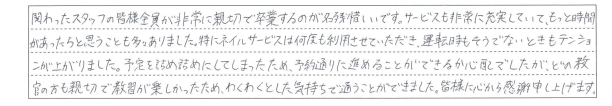 関わったスタッフの皆様全員が非常に親切で卒業するのが名残惜しいです。サービスも非常に充実していて、もっと時間
があったらと思うことも多々ありました。特にネイルサービスは何度も利用させていただき、運転時もそうでないときもテンショ
ンが上がりました。予定を詰め詰めにしてしまったため、予約通りに進めることができるか心配でしたが、どの教
官の方も親切で教習が楽しかったため、わくわくとした気持ちで通うことができました。皆様に心から感謝申し上げます。